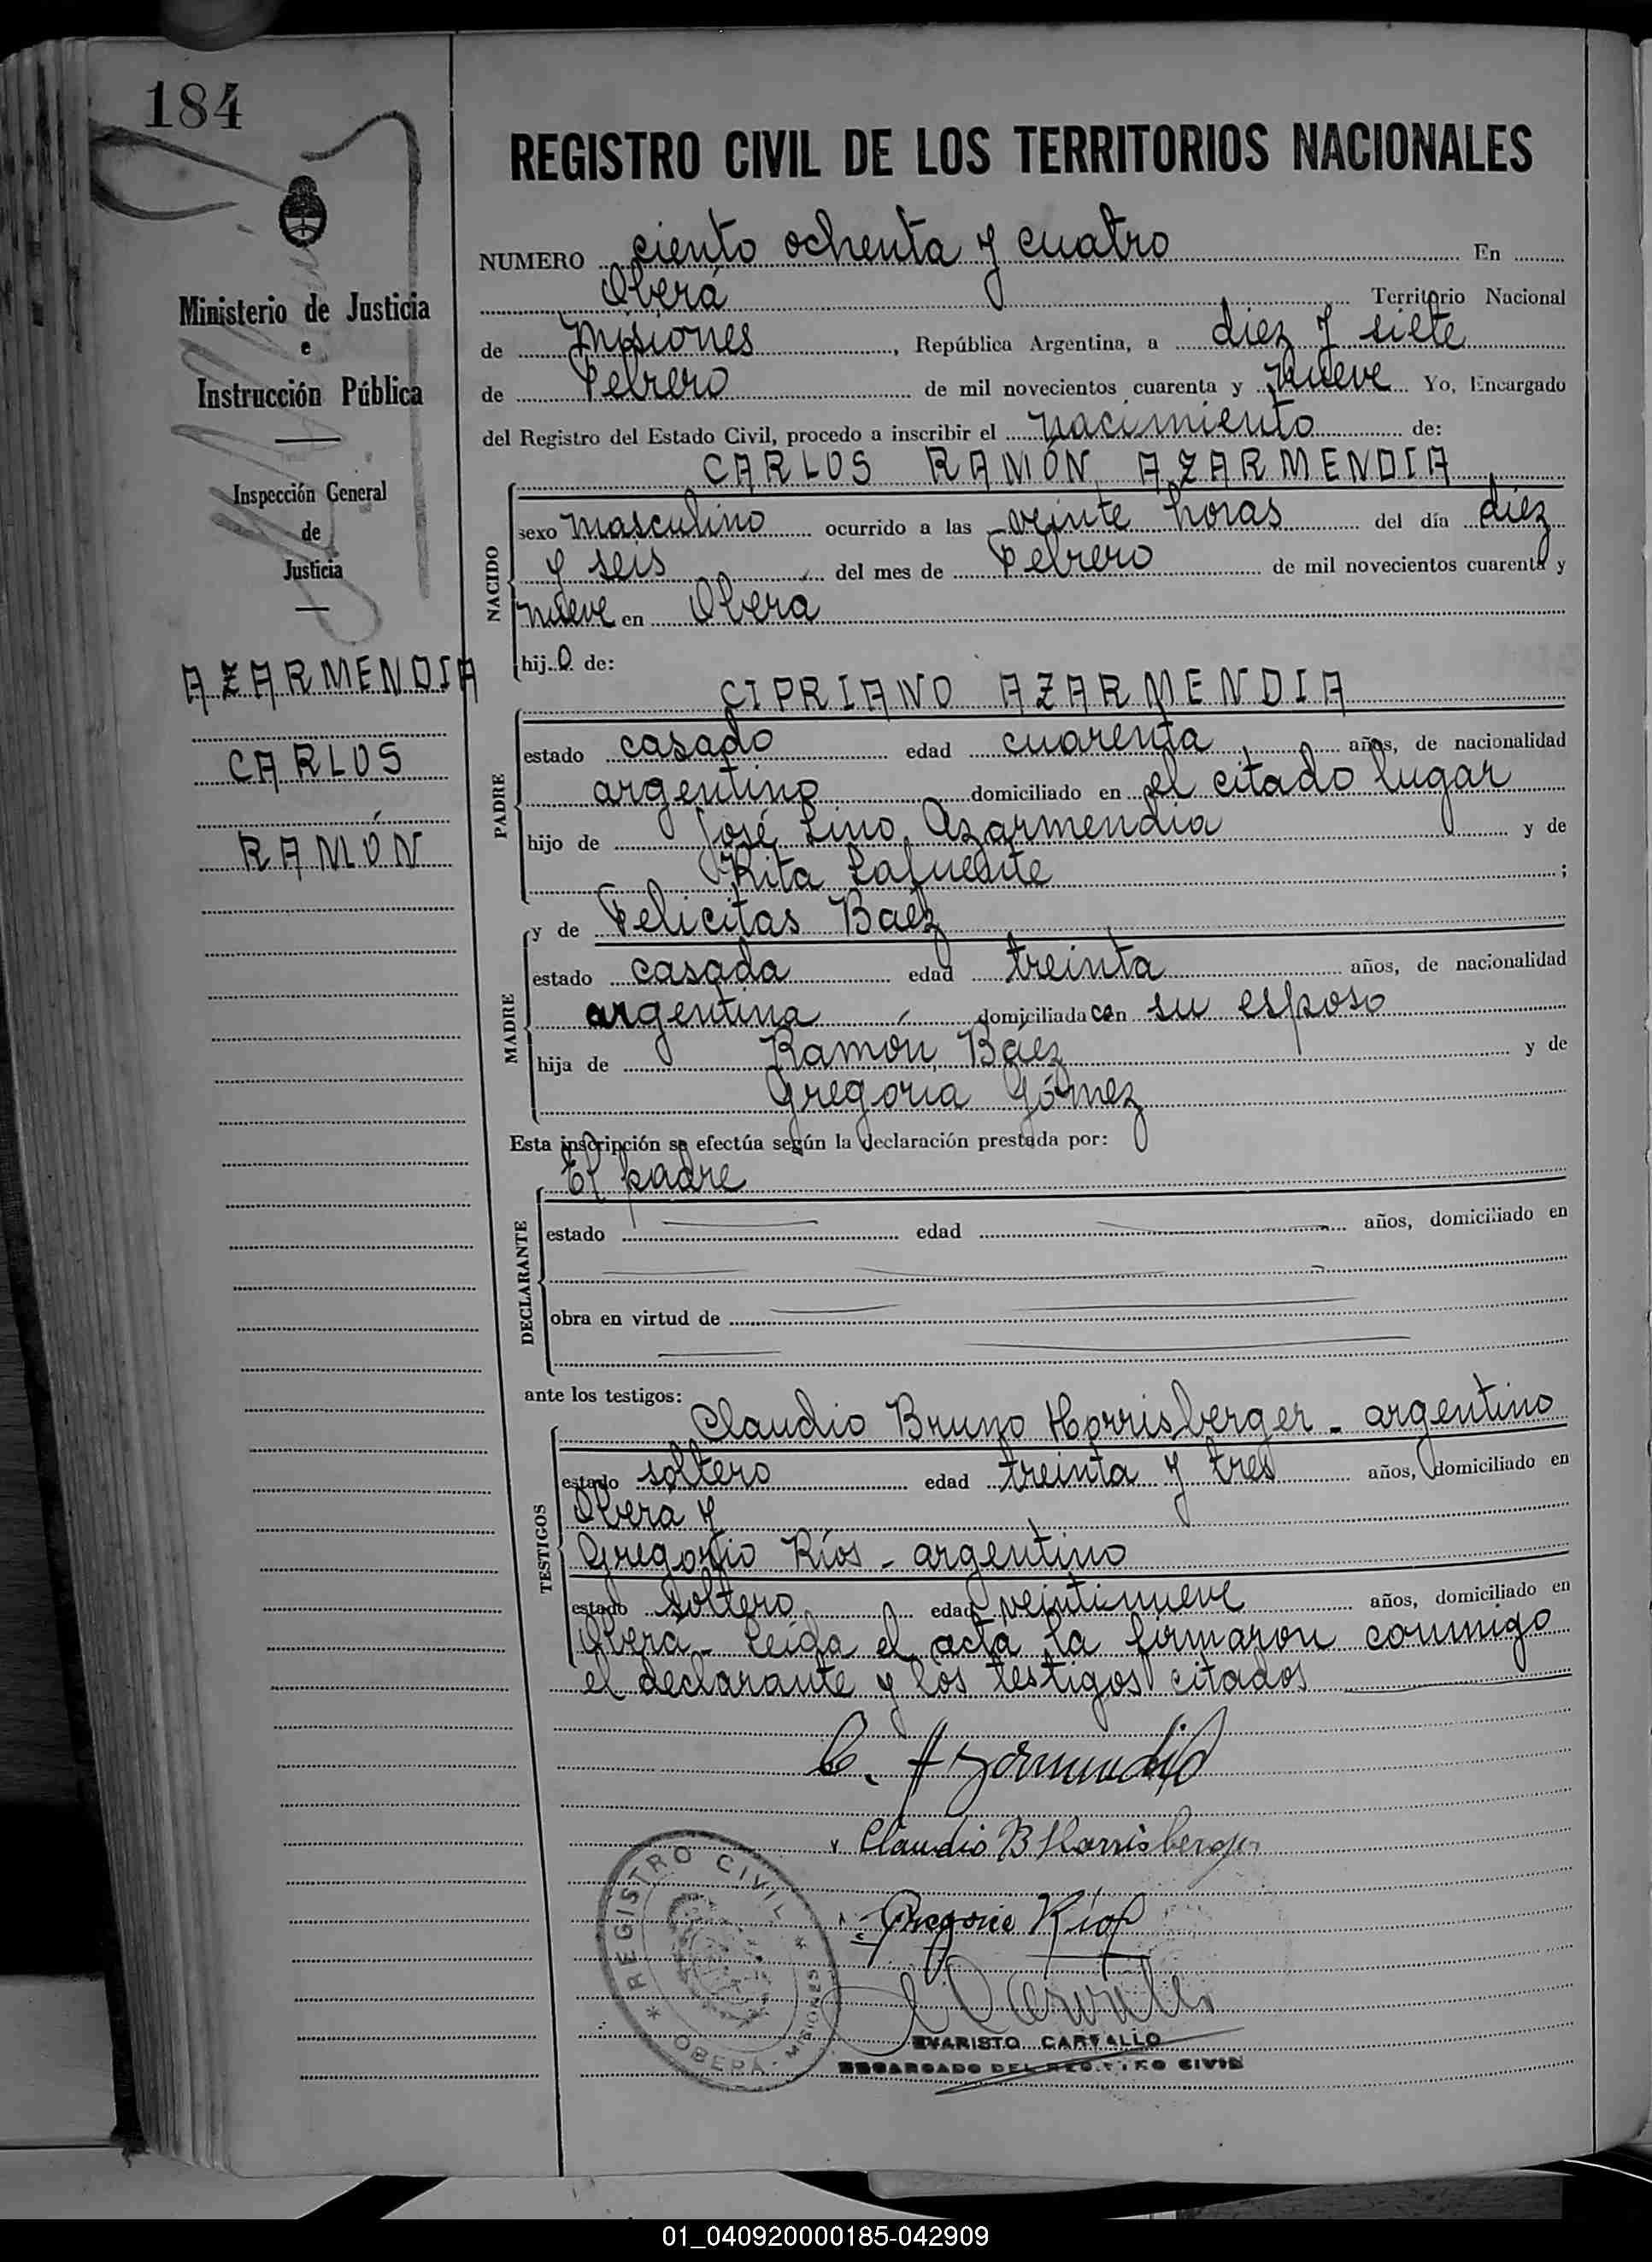 184
REGISTRO CIVIL DE LOS TERRITORIOS NACIONALES
NUMERO ciento ochenta y cuatro En
Oberá Territorio Nacional
Ministerio de Justicia
e
Instrucción Pública
Inspección General
de
Justicia
de Misiones, República Argentina, a diez y siete
de Febrero de mil novecientos cuarenta y nueve Yo, Encargado
del Registro del Estado Civil, procedo a inscribir el nacimiento de:
CARLOS RAMÓN AZARMENDIA
NACIDO
sexo masculino ocurrido a las veinte horas del día diez
y seis del mes de Febrero de mil novecientos cuarenta y
nueve en Oberá
hijo de:
AZARMENDIA
CARLOS
RAMÓN
CIPRIANO AZARMENDIA
PADRE
estado casado edad cuarenta años, de nacionalidad
argentino domiciliado en el citado lugar
hijo de José Lino Azarmendia y de
Rita Lafuente ;
y de Felicitas Baez
MADRE
estado casada edad treinta años, de nacionalidad
argentina domiciliada con su esposo
hija de Ramón Báez y de
Gregoria Gómez
Esta inscripción se efectúa según la declaración prestada por:
El padre
DECLARANTE
estado edad años, domiciliado en
obra en virtud de
ante los testigos:
Claudio Bruno Horrisberger - argentino
TESTIGOS
estado soltero edad treinta y tres años, domiciliado en
Oberá y
Gregorio Ríos - argentino
estado soltero edad veintinueve años, domiciliado en
Oberá - Leída el acta la firmaron conmigo
el declarante y los testigos citados
C. Azarmendia
Claudio B Horrisberger
Gregorio Ríos
REGISTRO CIVIL
OBERÁ - MISIONES
EVARISTO CARVALLO
ENCARGADO DEL REGISTRO CIVIL
01_040920000185-042909